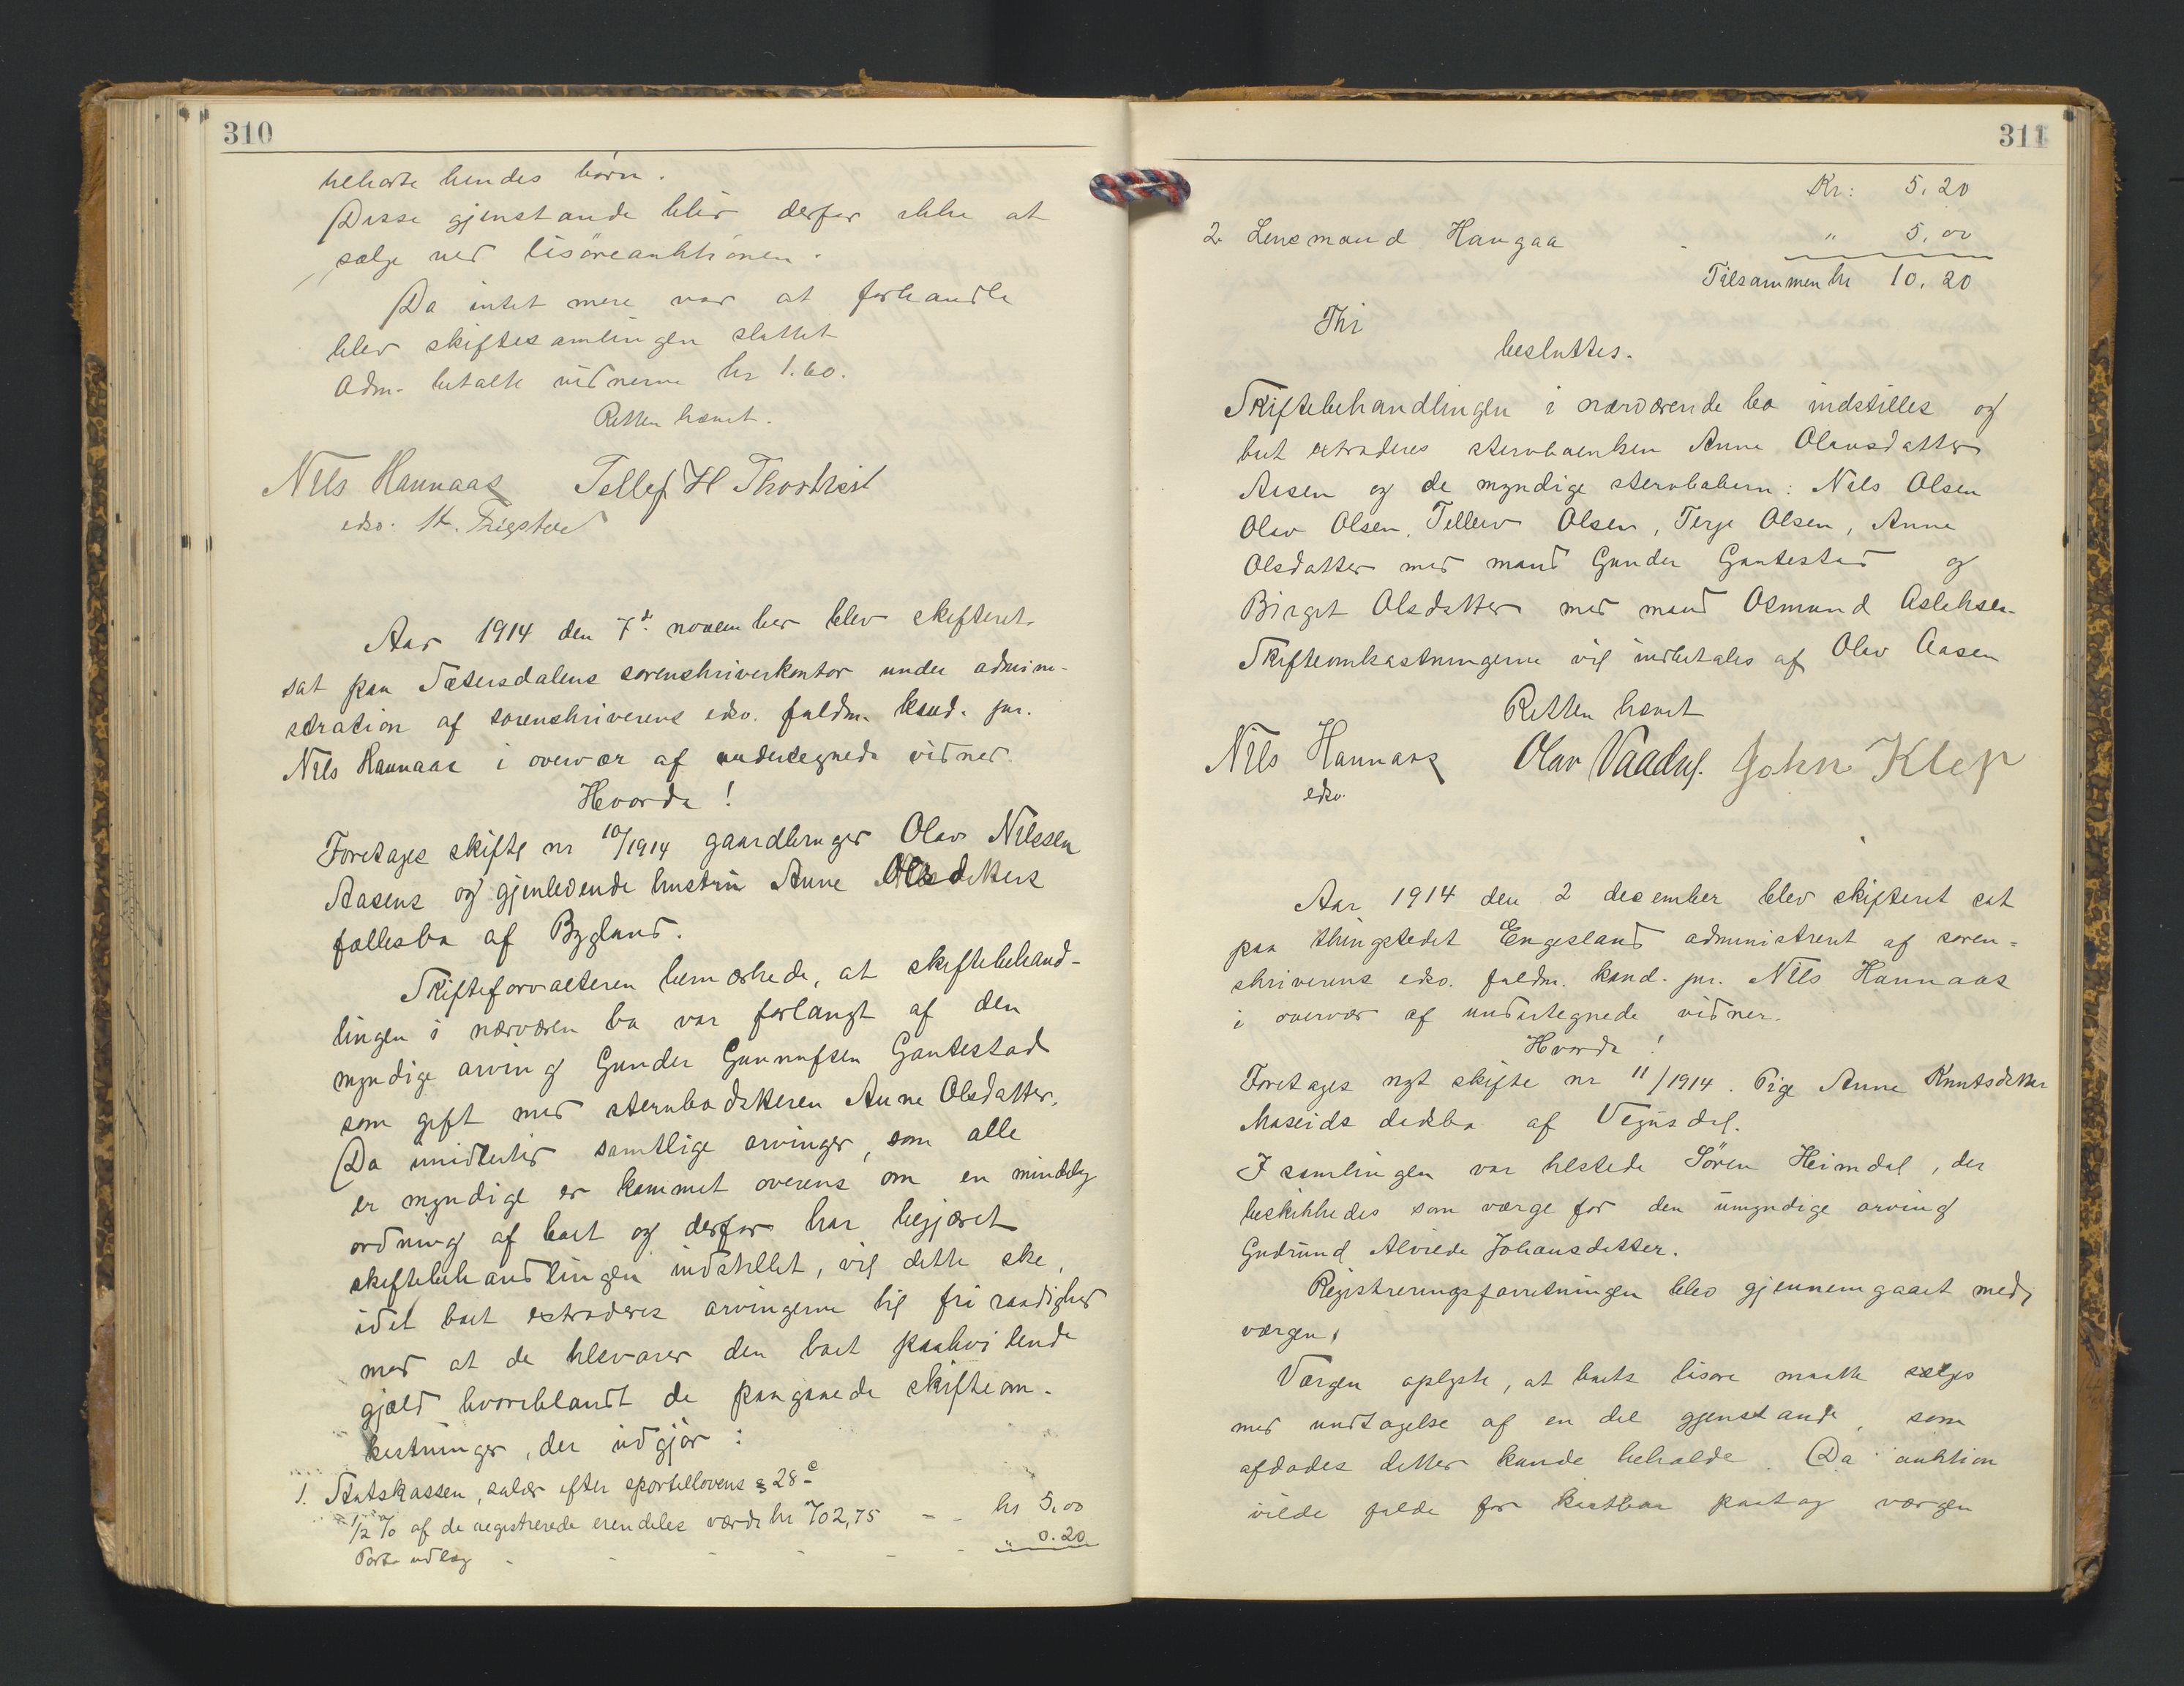 310
tilhørte hendes børn.
Disse gjenstande blir derfor ikke at
sælge ved løsøreauktionen.
Da intet mere var at forhandle
blev skiftesamlingen sluttet
Adm. betalte vidnerne kr 1.60.
Retten hævet.
Nils Hannaas Tellef H
edsv.
Aar 1914 den 7de november blev skifteret
sat paa Sætersdalens sorenskriverkontor under admini-
stration af sorenskriverens edsv. fuldm. kand. jur.
Nils Hannaas i overvær af undertegnede vidner.
Hvorda!
Foretages skifte nr 10/1914 gaardbruger Olav Nilssen
Aasens og gjenlevende hustru Anne Olsdatters
fællesbo af Bygland.
Skifteforvalteren bemærkede, at skiftebehand-
lingen i nærværen bo var forlangt af den
myndige arving Gunder Gunnufsen Gautestad
som gift med sterbodatteren Anne Olsdatter.
Da imidlertid samtlige arvinger, som alle
er myndige er kommet overens om en mindelig
ordning af boet og derfor har begjæret
skiftebehandlingen indstillet, vil dette ske,
idet boet extraderes arvingerne til fri raadighed
mod at de tilsvarer den boet paahvilende
gjæld hvoriblandt de paagaaede skifteom-
kostninger, der udgjør:
1. Statskassen, salær efter sportellovens § 28 c
1/2 % af de registrerede eiendeles værdi kr 702,75 - - kr 5.00
Porto udlæg - - - - - " 0.20
311
Kr: 5.20
2. Lensmand Haugaa - " 5,00
Tilsammen kr 10.20
Thi
besluttes.
Skiftebehandlingen i nærværende bo indstilles og
boet extraderes sterboenken Anne Olausdatter
Aasen og de myndige sterbobørn: Nils Olsen
Olav Olsen, Tellev Olsen, Terje Olsen, Anne
Olsdatter med mand Gunder Gautestad og
Birget Olsdatter med mand Osmund Aslaksen.
Skifteomkostningerne vil indbetales af Olav Aasen
Retten hævet
Nils Hannaas Olav Vaadal. John Klep
edsv.
Aar 1914 den 2 december blev skifteret sat
paa thingstedet Engesland administrert af soren=
skriverens edsv. fuldm. kand. jur. Nils Hannaas
i overvær af undertegnede vidner.
Hvorda!
Foretages nyt skifte nr 11/1914. Pige Anne Knutsdatter
Maseids dødsbo af Vegusdal.
I samlingen var tilstede Søren Heimdal, der
beskikkedes som værge for den umyndige arving
Gudrund Alvilde Johansdatter.
Registreringsforretningen blev gjennemgaaet med
værgen.
Værgen oplyste, at boets løsøre maatte sælges
med undtagelse af en del gjenstande, som
afdødes datter kunde beholde. Da auktion
vilde falde for kostbar paatog værgen